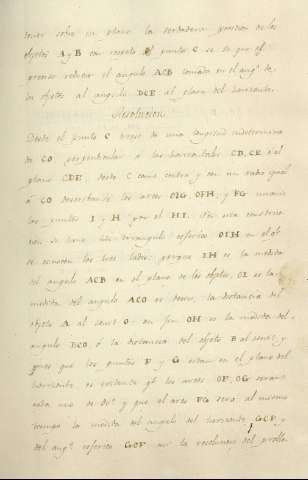 tener sobre un plano la verdadera posicion de los
objetos A y B con respecto al punto C se ve que es
preciso reducir el angulo ACB tomado en el ang.o de
los objetos al angulo DCE al plano del horizonte.
Resolucion
Desde el punto C tirese de una longitud indeterminada
CO perpendicular á las horizontales CD, CE ó al
plano CDE: desde C como centro y con un radio igual
á CO describanse los arcos OIG, OHF, y FG unanse
los puntos I y H por el HI. Por esta construc
cion se tiene un triangulo esferico OIH en el q.e
se conocen los tres lados, porque IH es la medida
del angulo ACB en el plano de los objetos, OI es la
medida del angulo ACO es decir, la distancia del
objeto A al zenit O: en fin OH es la medida del
angulo BCO ó la distancia del objeto B al zenit, y
pues que los puntos F y G estan en el plano del
horizonte es evidente q.e los arcos OF, OG seran
cada uno de 90.o y que el arco FG será al mismo
tiempo la medida del angulo del horizonte GCF y
del ang.o esferico GOF así la resolucion del probl.a